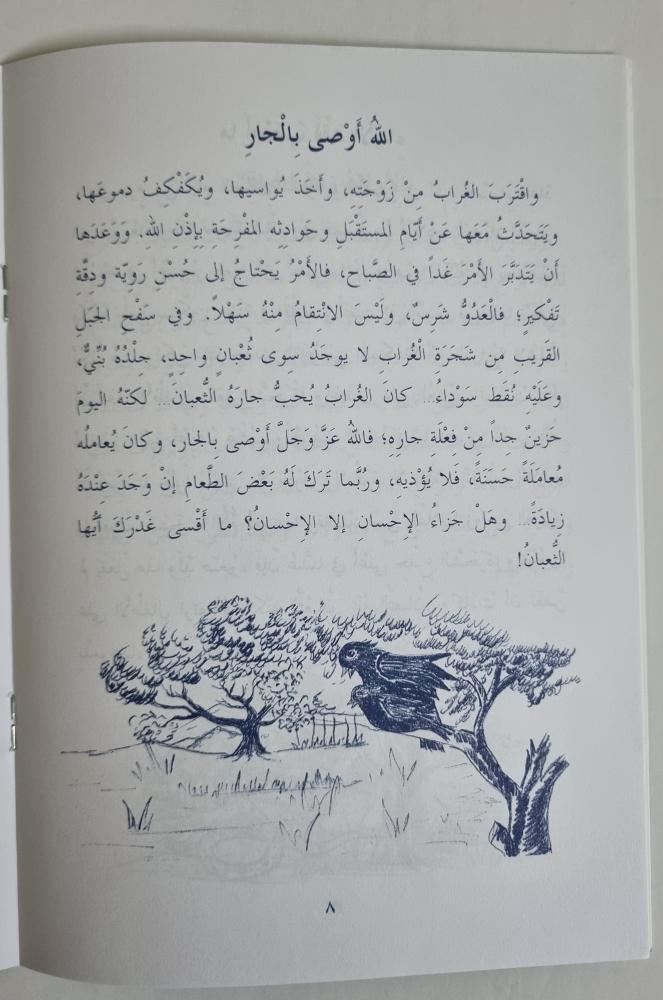 اللهُ أَوْصى بِالْجارِ
واقْتَرَبَ الغُرابُ مِنْ زَوْجَتِهِ، وأَخَذَ يُواسيها، ويُكَفْكِفُ دموعَها،
ويَتَحَدَّثُ مَعَها عَنْ أَيّامِ المستَقْبَلِ وحَوادِثِه المفْرِحَةِ بِإِذْنِ اللهِ. وَوَعَدَها
أَنْ يَتَدَبَّرَ الأَمْرَ غَداً في الصَّباح، فالأَمْرُ يَحْتاجُ إلى حُسْنِ رَوِيّة ودِقَّةِ
تَفْكيرٍ؛ فالْعَدُوُّ شَرِسٌ، ولَيْسَ الانْتِقامُ مِنْهُ سَهْلاً. وفي سَفْحِ الجَبَلِ
القَريبِ مِن شَجَرَة الْغُراب لا يوجَدُ سِوى ثُعْبانٍ واحِدٍ، جِلْدُهُ بُنِّيٌّ،
وعَلَيْهِ نُقَط سَوْداءُ... كانَ الغُرابُ يُحبُّ جارَهُ الثُّعبانَ... لكنّهُ اليومَ
حَزينٌ جِداً مِنْ فِعْلَةِ جارِهِ؛ فاللهُ عَزَّ وَجَلَّ أَوْصى بِالجار، وكانَ يُعاملُه
مُعامَلَةً حَسَنَةً، فَلا يُؤْذيهِ، ورُبَّما تَرَكَ لَهُ بَعْضَ الطَّعامِ إنْ وَجَدَ عِنْدَهُ
زِيادَةً... وهَلْ جَزاءُ الإِحْسانِ إلا الإِحْسانُ؟ ما أَقْسى غَدْرَكَ أَيُّها
الثُّعبانُ!
٨